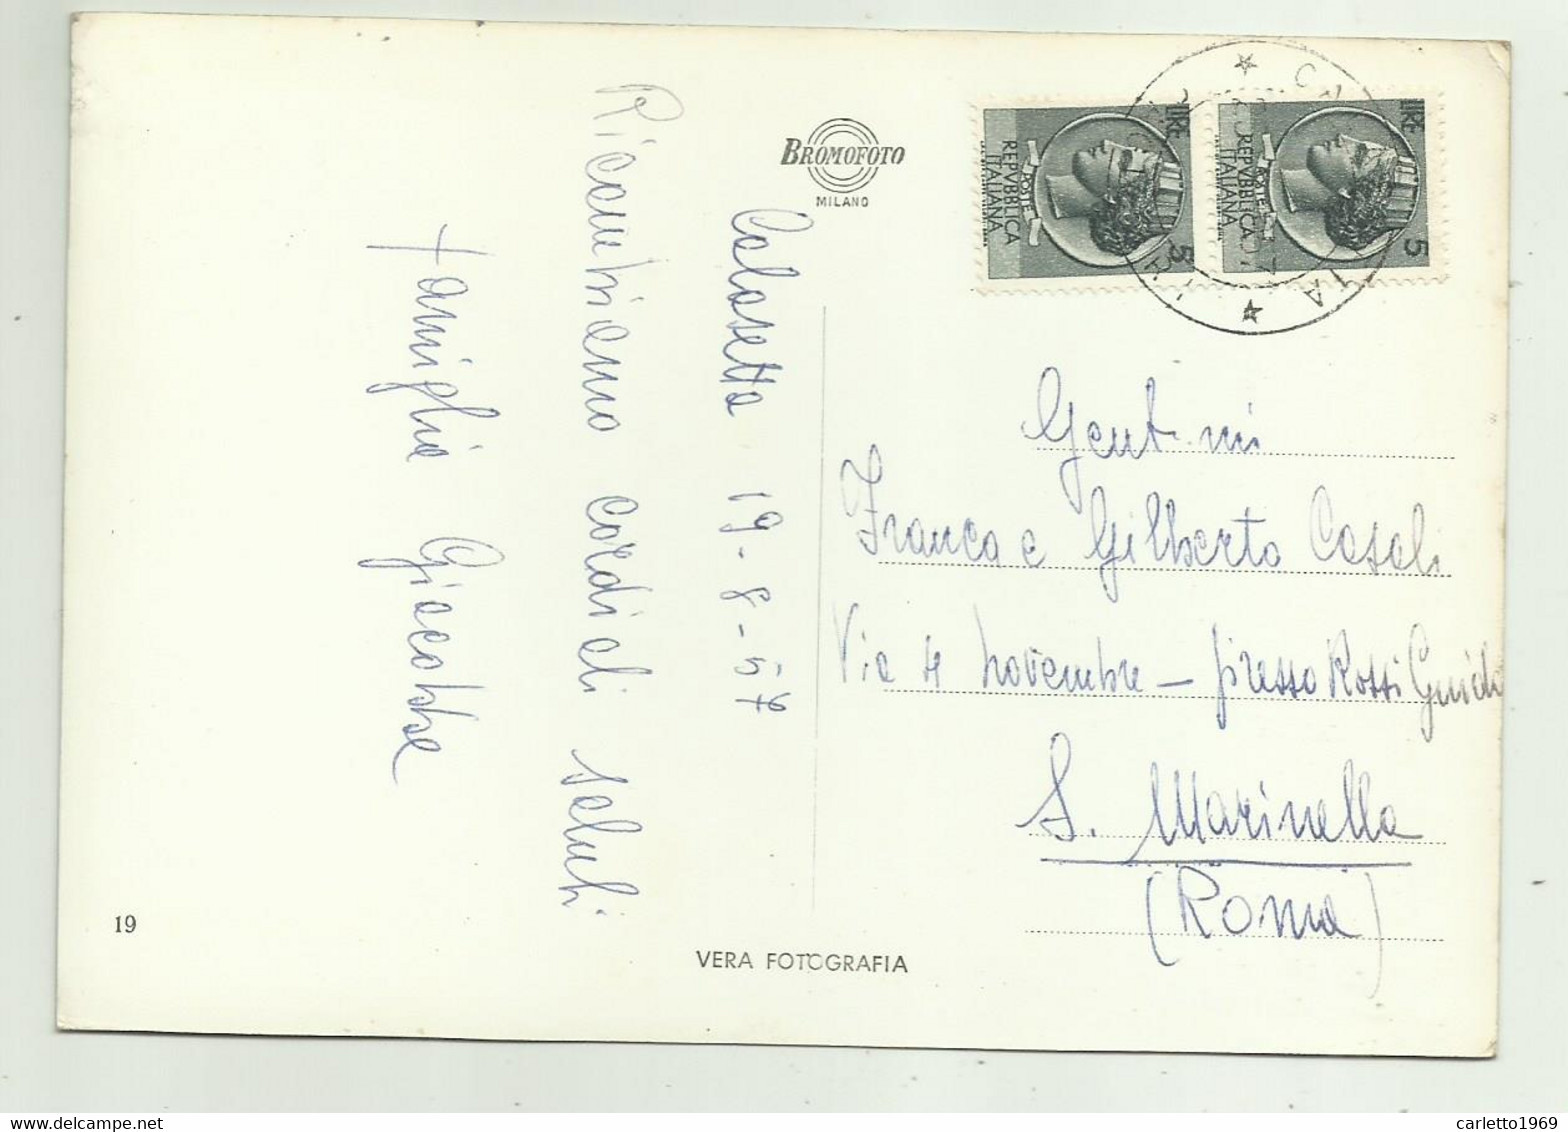 BROMOFOTO
MILANO
LIRE 5
REPVBBLICA
ITALIANA
LIRE 5
REPVBBLICA
ITALIANA
Calasetta 19-8-57
Ricambiamo cordiali saluti
famiglia
Gent.mi
Franca e Gilberto Casali
Via 4 novembre - presso Rossi Guido
S. Marinella
(Roma)
19
VERA FOTOGRAFIA
carletto1969